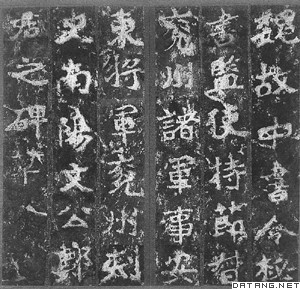 魏故中書令秘
書監使持節督
兗州諸軍事安
東將軍兗州刺
史南陽文公鄭
君之碑草
DATANG.NET